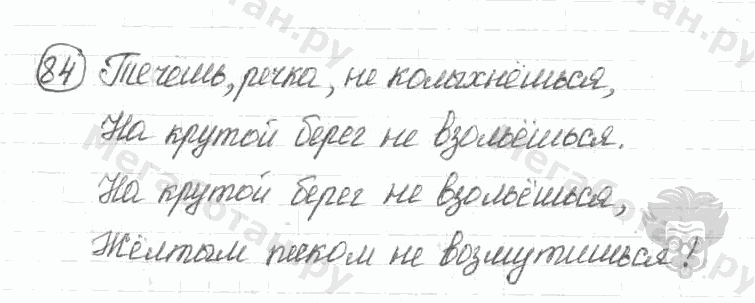 84 Течёшь, речка, не колыхнёшься,
На крутой берег не взольёшься.
На крутой берег не взольёшься,
Жёлтым песком не возмутишься!
мегаботан.ру